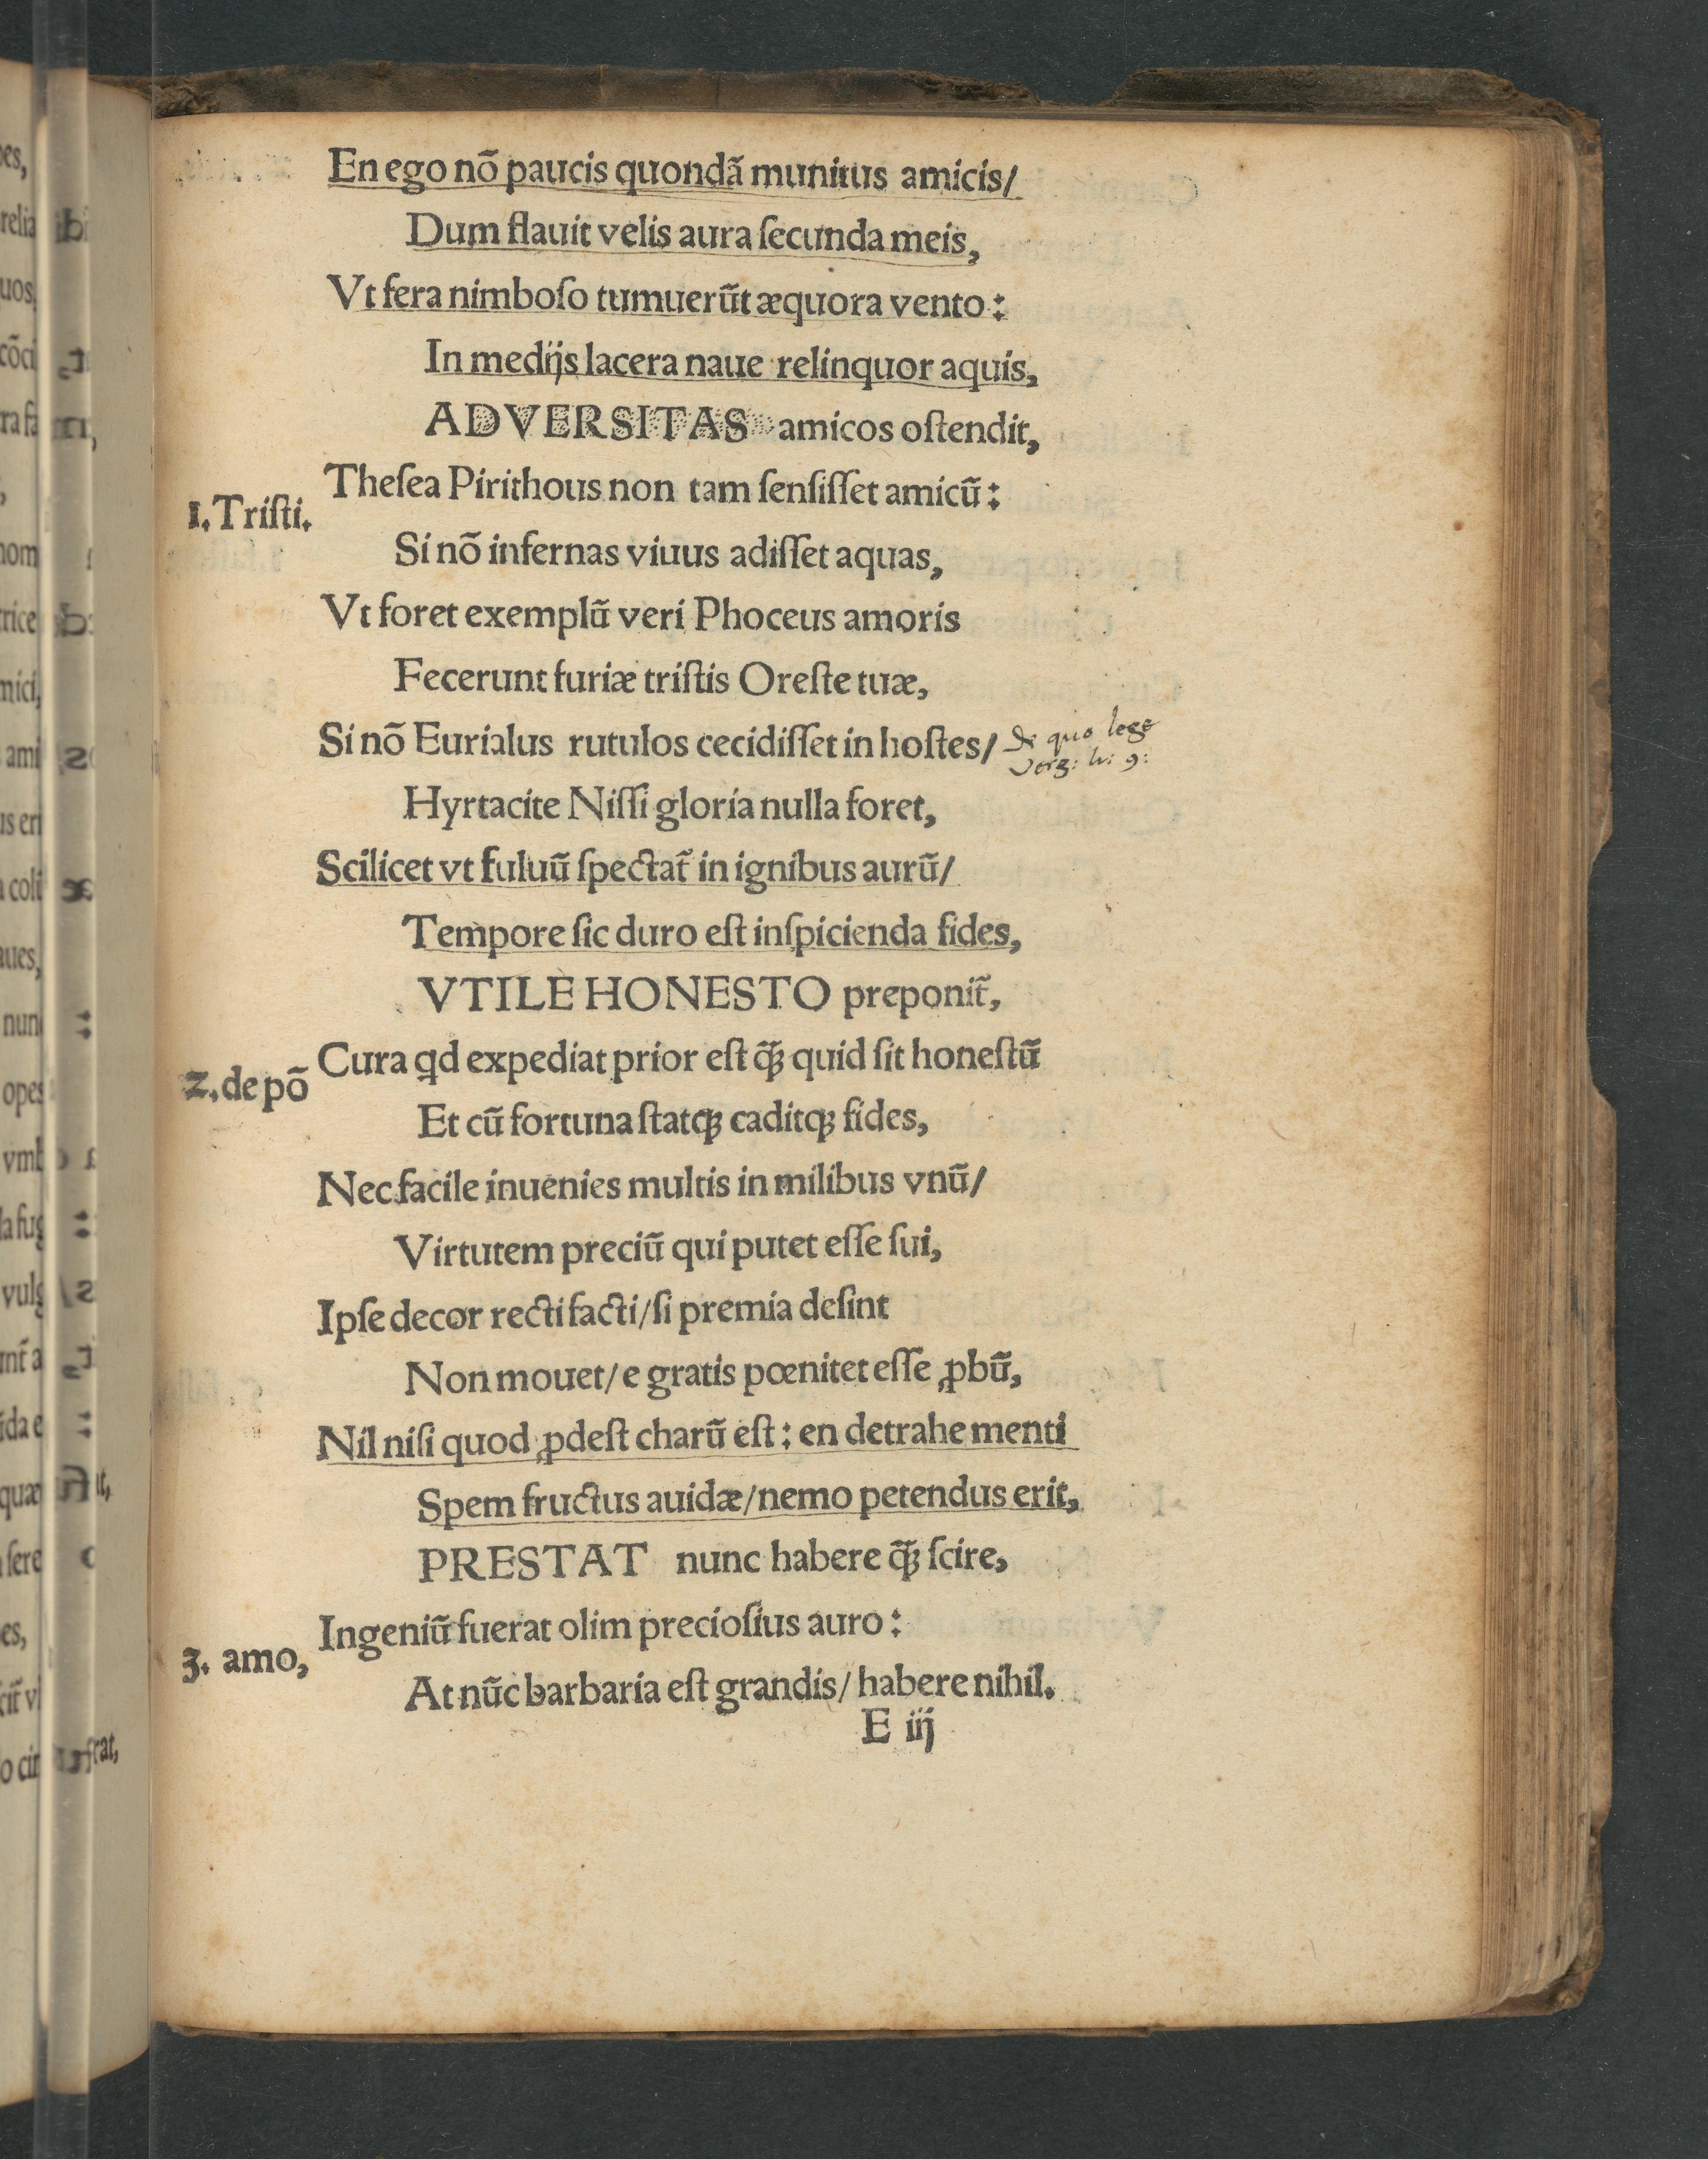 En ego nõ paucis quondã munitus amicis/
Dum flauit velis aura ſecunda meis,
Vt fera nimboſo tumuerũt æquora vento:
In medijs lacera naue relinquor aquis,
ADVERSITAS amicos oſtendit,
1. Triſti.
Theſea Pirithous non tam ſenſiſſet amicũ:
Si nõ infernas viuus adiſſet aquas,
Vt foret exemplũ veri Phoceus amoris
Fecerunt furiæ triſtis Oreſte tuæ,
Si nõ Eurialus rutulos cecidiſſet in hoſtes/
De quo lege
Verg: li: 9:
Hyrtacite Niſſi gloria nulla foret,
Scilicet vt fuluũ ſpectat̃ in ignibus aurũ/
Tempore ſic duro eſt inſpicienda fides,
VTILE HONESTO preponit̃,
2. de põ
Cura qd expediat prior eſt q̃ꝫ quid ſit honeſtũ
Et cũ fortuna ſtatqꝫ caditqꝫ fides,
Nec facile inuenies multis in milibus vnũ/
Virtutem preciũ qui putet eſſe ſui,
Ipſe decor recti facti/ſi premia deſint
Non mouet/e gratis pœnitet eſſe ꝓbũ,
Nil niſi quod ꝓdeſt charũ eſt: en detrahe menti
Spem fructus auidæ/nemo petendus erit,
PRESTAT nunc habere q̃ꝫ ſcire,
3. amo,
Ingeniũ fuerat olim precioſius auro:
At nũc barbaria eſt grandis/habere nihil.
E iij